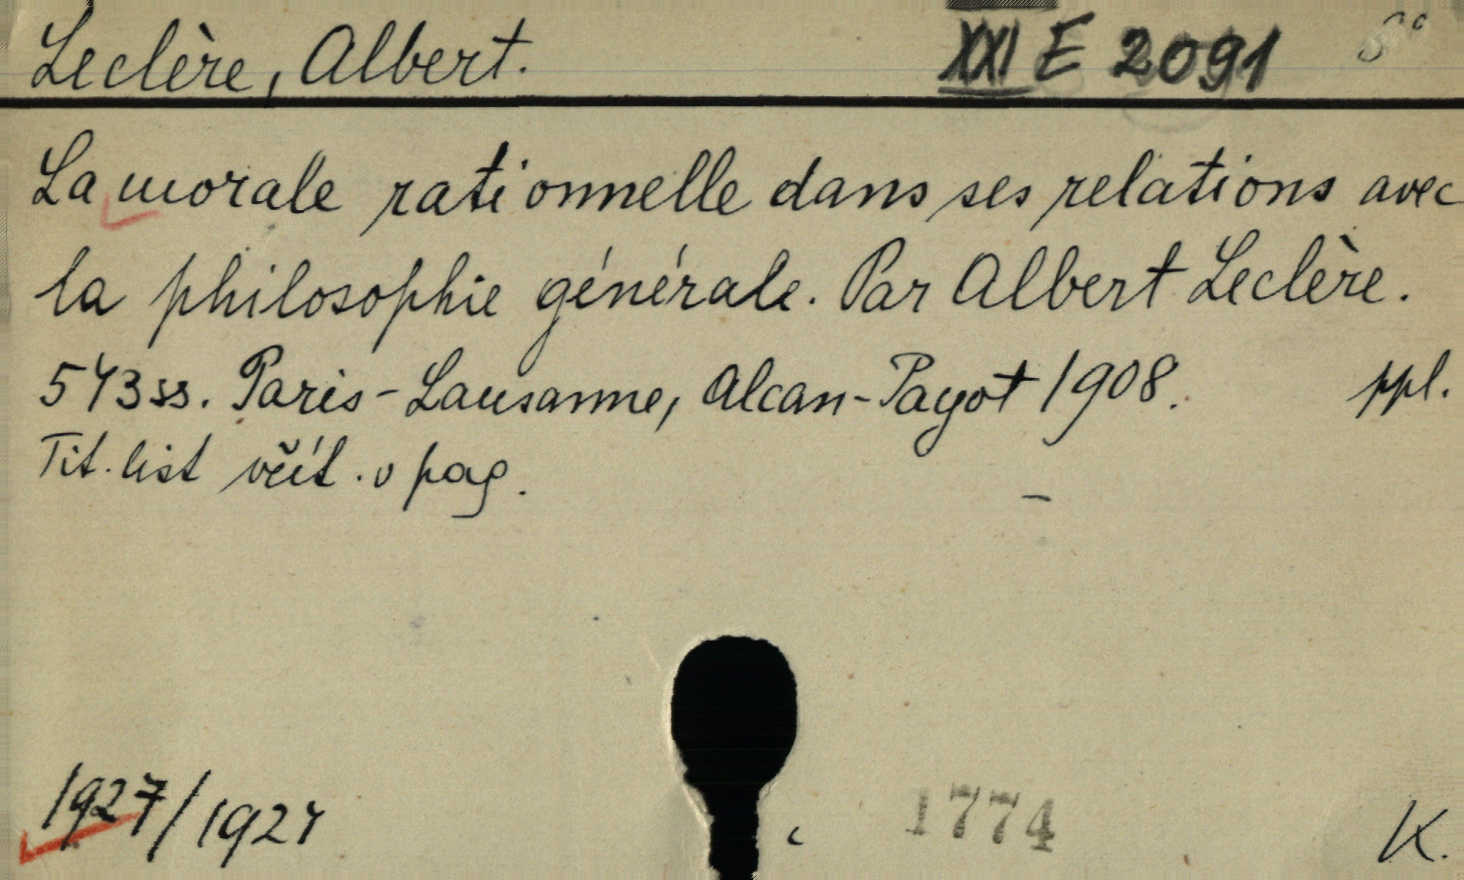 Leclère, Albert. XXI E 2091 8°
La morale rationnelle dans ses relations avec
la philosophie générale. Par Albert Leclère.
543 ss. Paris-Lausanne, Alcan-Payot 1908. ppl.
Tit. list včít. v pag.
1927/1924
1774
K.